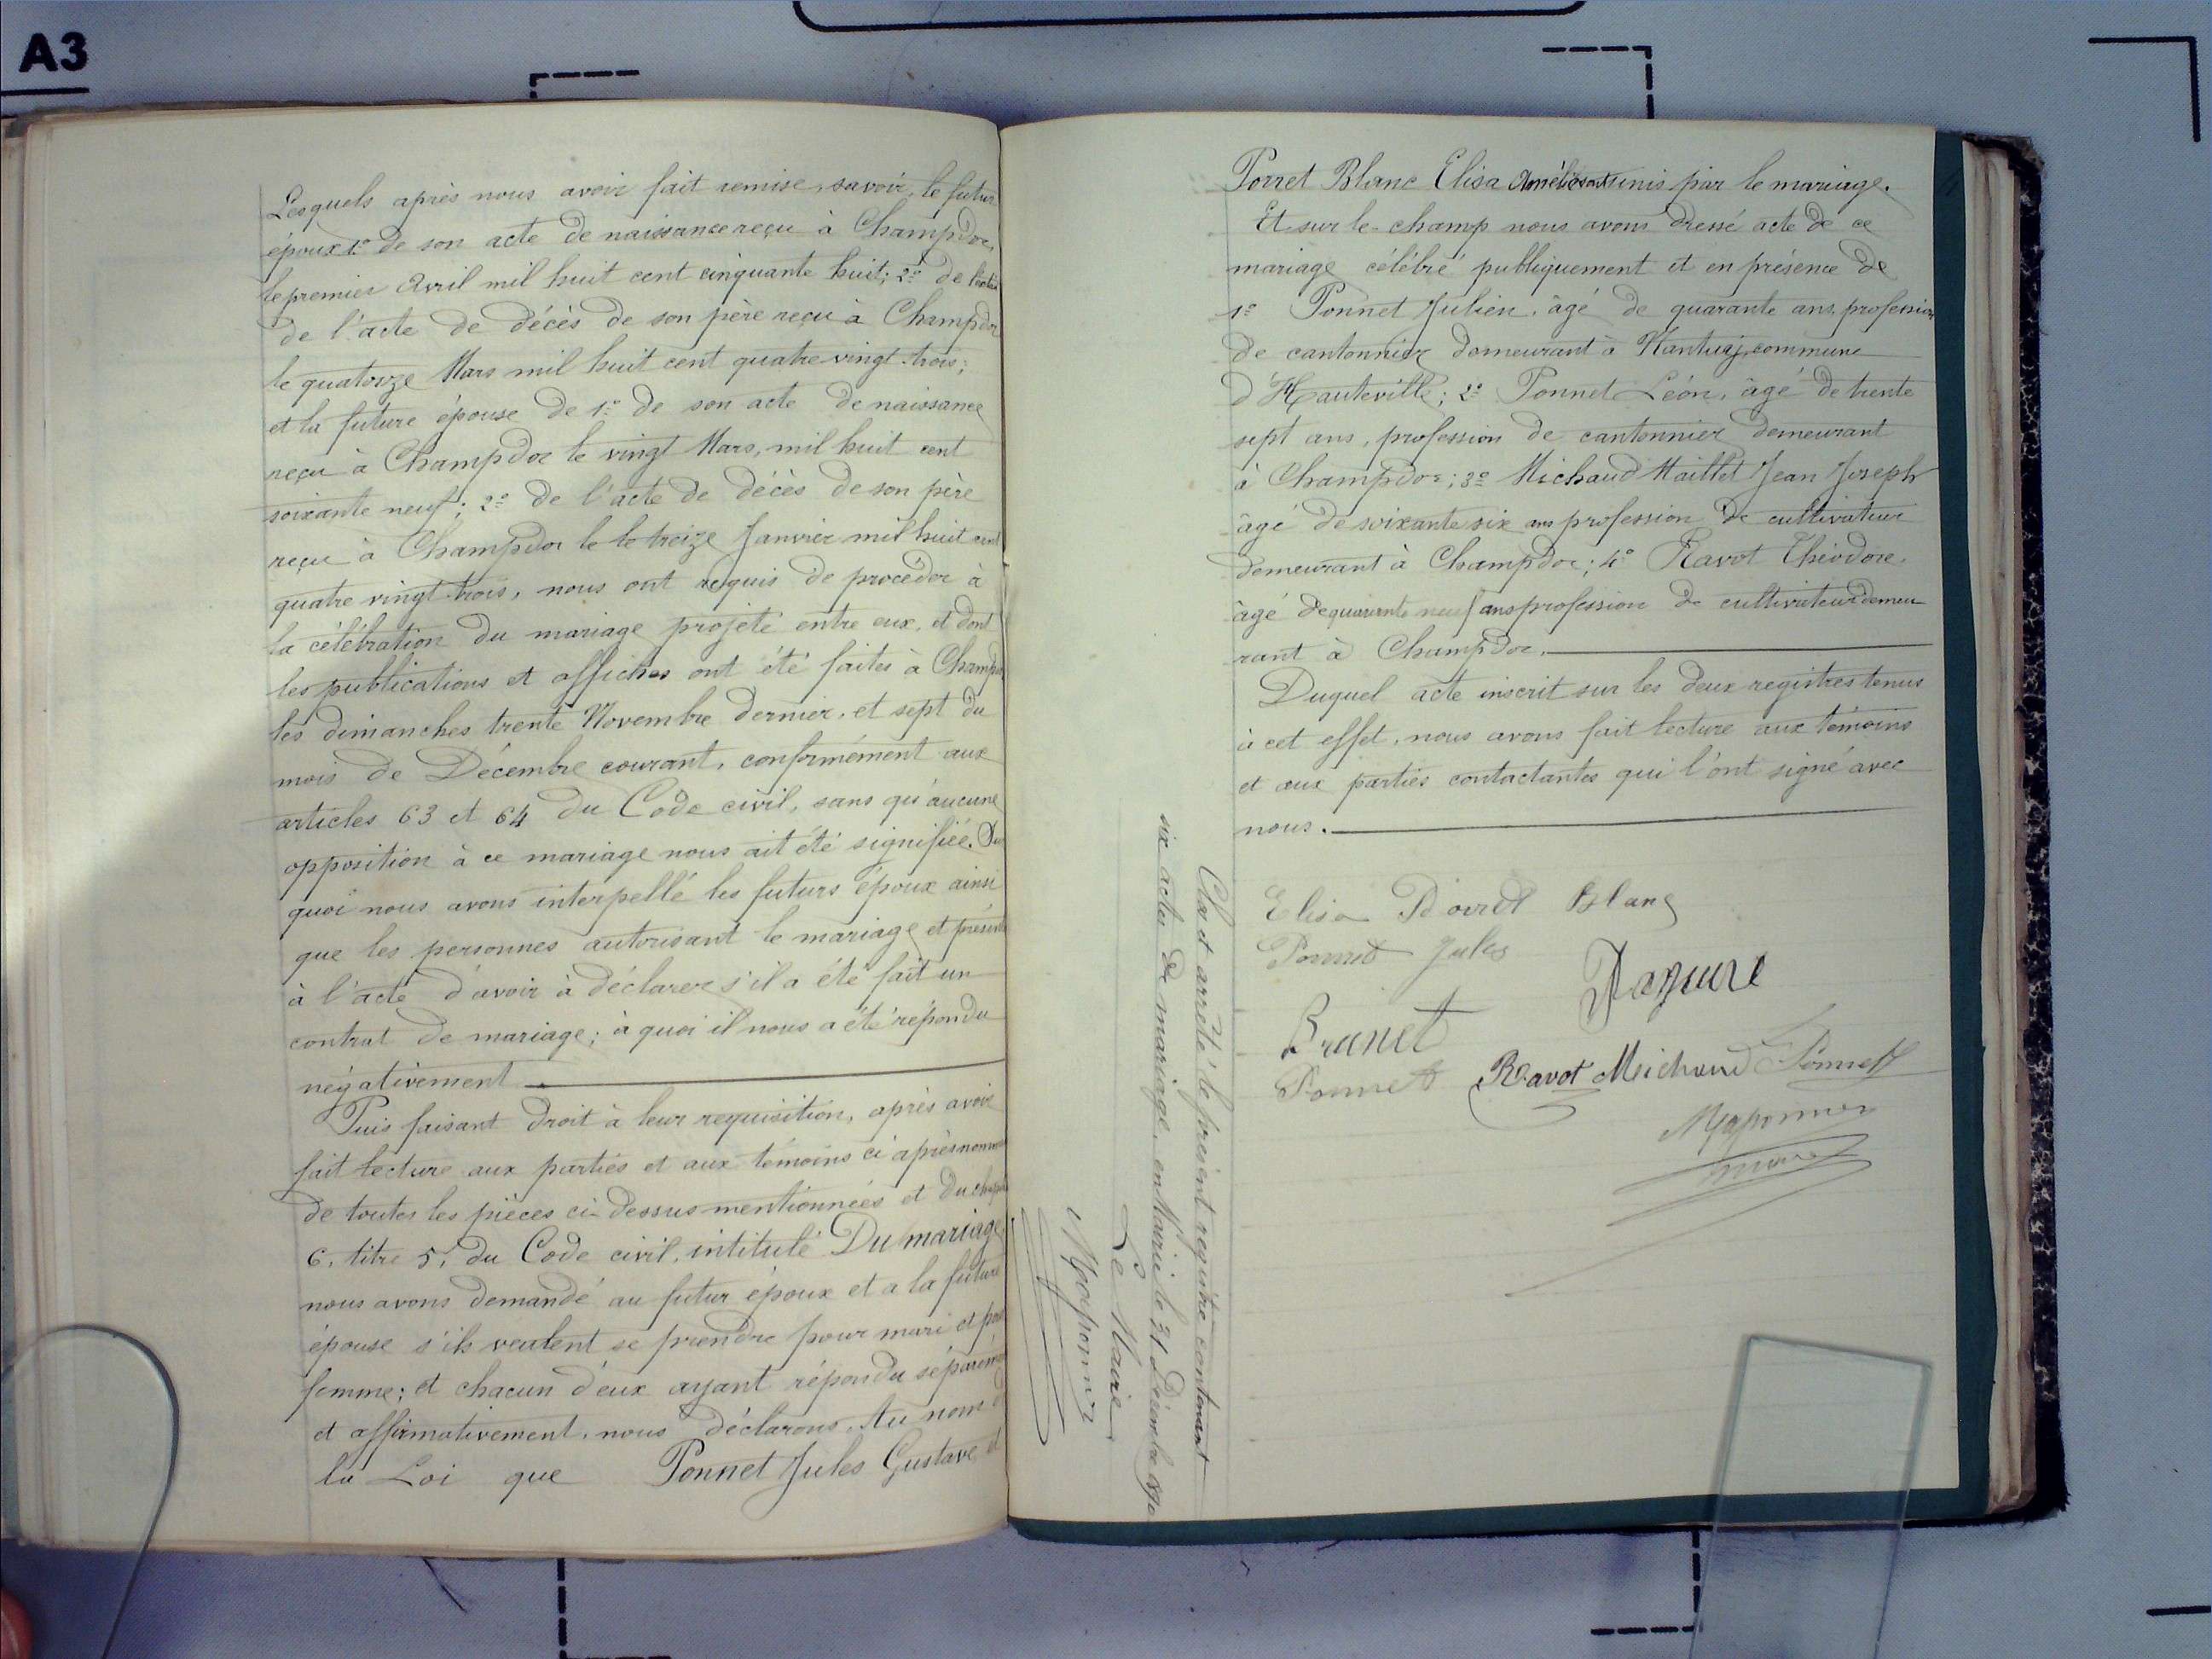 A3
Lesquels après nous avoir fait remise, savoir, le futur
époux 1º de son acte de naissance reçu à Champdor,
le premier Avril mil huit cent cinquante huit; 2º de
de l'acte de décès de son père reçu à Champdor
le quatorze Mars mil huit cent quatre vingt-trois;
et la future épouse de 1º de son acte de naissance
reçu à Champdor le vingt Mars, mil huit cent
soixante neuf; 2º de l'acte de décès de son père
reçu à Champdor le le treize Janvier mil huit cent
quatre vingt-trois, nous ont requis de procéder à
la célébration du mariage projeté entre eux, et dont
les publications et affiches ont été faites à Champdor
les dimanches trente Novembre dernier, et sept du
mois de Décembre courant, conformément aux
articles 63 et 64 du Code civil, sans qu'aucune
opposition à ce mariage nous ait été signifiée. Sur
quoi nous avons interpellé les futurs époux ainsi
que les personnes autorisant le mariage et présentes
à l'acte d'avoir à déclarer s'il a été fait un
contrat de mariage; à quoi il nous a été répondu
négativement
Puis faisant droit à leur requisition, après avoir
fait lecture aux parties et aux témoins ci après nommés
de toutes les pièces ci-dessus mentionnées et du chapitre
6, titre 5, du Code civil, intitulé Du mariage
nous avons demandé au futur époux et a la future
épouse s'ils veulent se prendre pour mari et pour
femme; et chacun d'eux ayant répondu séparément
et affirmativement, nous déclarons, Au nom de
la Loi que Ponnet Jules Gustave et
Porret Blanc Elisa Amélie sont unis par le mariage.
Et sur le-champ nous avons dressé acte de ce
mariage célébré publiquement et en présence de
1º Ponnet Julien, âgé de quarante ans, profession
de cantonnier demeurant à Nantuy, commune
d'Hauteville; 2º Ponnet Léon, âgé de trente
sept ans, profession de cantonnier demeurant
à Champdor; 3º Michaud Maillet Jean Joseph
âgé de soixante six ans profession de cultivateur
demeurant à Champdor; 4º Ravot Théodore,
âgé de quarante neuf ans profession de cultivateur demeu
rant à Champdor.
Duquel acte inscrit sur les deux registres tenus
à cet effet, nous avons fait lecture aux témoins
et aux parties contactantes qui l'ont signé avec
nous.
Elisa Porret Blanc
Ponnet Jules
Brunet
Ponnet Ravot Michaud Ponnet
Clos et arrêté le présent registre contenant
six actes de mariage, en Mairie le 31 Décembre 1890
Le Maire